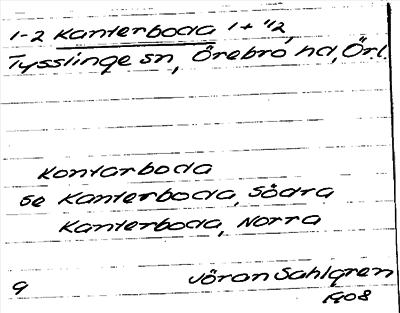 1-2 Kanterboda 1 + 1/2,
Tysslinge sn, Örebro hd, Örl.
Kontorboda
se Kanterboda, Södra
Kanterboda, Norra
9 Jöran Sahlgren
1908